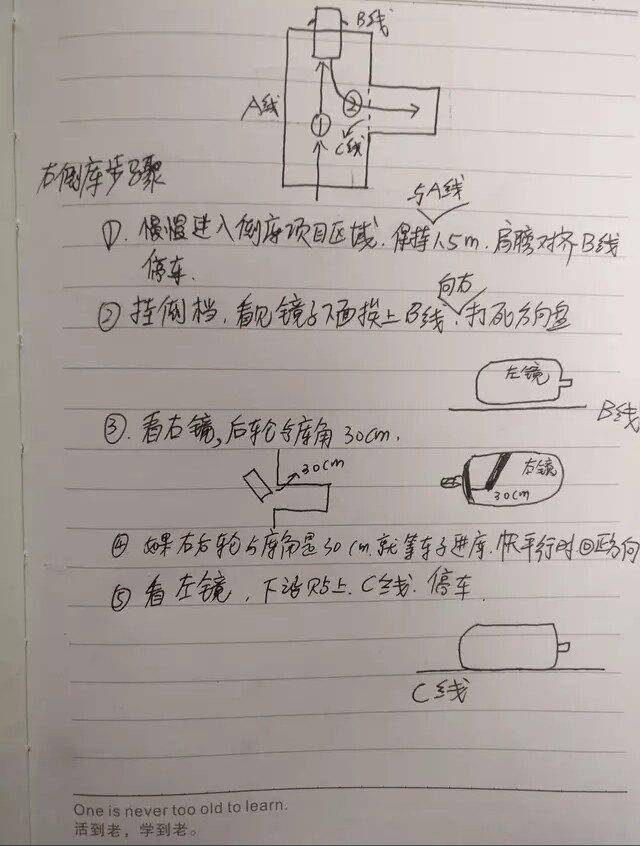 B线
A线
①
②
C线
右倒库步骤
与A线
①. 慢慢进入倒库项目区域. 保持1.5m. 肩膀对齐B线
停车.
向右
② 挂倒档. 看见镜子下面挨上B线. 打死方向盘
左镜
B线
③. 看右镜, 后轮与库角30cm.
30cm
右镜
30cm
④ 如果右后轮与库角是30cm. 就等车子进库. 快平行时回正方向
⑤ 看左镜, 下沿贴上C线. 停车.
C线
One is never too old to learn.
活到老，学到老。